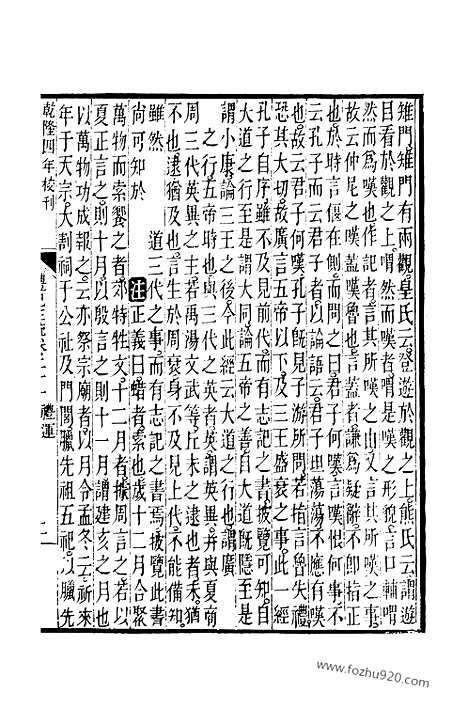 雉門雉門有兩觀皇氏云登遊於觀之上熊氏云謂遊
目看於觀之上喟然而嘆者喟是嘆之形貌言口輔喟
然而爲嘆也作記者言其所嘆之由又言其所嘆之事
故云仲尼之嘆蓋嘆魯也言蓋者謙爲疑辭不即指正
也於時言偃在側而問之曰君子何嘆言嘆恨何事不
云孔子而云君子者以論語云君子坦蕩蕩不應有嘆
也故云君子何嘆孔子旣見子游所問若指言魯失禮
恐其大切故廣言五帝以下及三王盛衰之事此一經
孔子自序雖不及見前代而有志記之書披覽可知自
大道之行至是謂大同論五帝之善自大道旣隱至是
謂小康論三王之後今此經云大道之行也謂廣
之行五帝時也與三代之英者英謂英異并與夏商
周三代英異之主若禹湯文武等丘未之逮也者未猶
不也逮猶及也言生於周衰身不及見上代不能備知
雖然 道三代之事而有志記之書焉披覽此書
尚可知於 注正義曰蜡者索也歲十二月合聚
萬物而索饗之者郊特牲文十二月者據周言之若以
夏正言之則十月以殷言之則十一月謂建亥之月也
以萬物功成報之云亦祭宗廟者以月令孟冬云祈來
年于天宗大割祠于公社及門閭臘先祖五祀以臘先
乾隆四年校刊 禮運
www.fozhu920.com